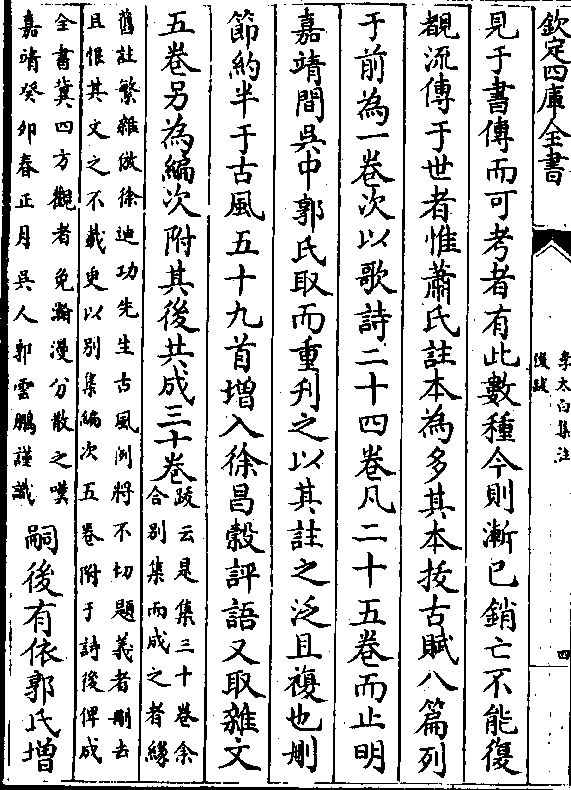 欽定四庫全書
李太白集注
後跋
四
見于書傳而可考者有此數種今則漸已銷亡不能復
覩流傳于世者惟蕭氏註本為多其本按古賦八篇列
于前為一卷次以歌詩二十四卷凡二十五卷而止明
嘉靖間吳中郭氏取而重刋之以其註之泛且複也刪
節約半于古風五十九首增入徐昌穀評語又取雜文
五卷另為編次附其後共成三十卷
跋云是集三十卷余
合別集而成之者緣
舊註繁雜倣徐迪功先生古風例將不切題義者刪去
且恨其文之不載更以別集編次五卷附于詩後俾成
全書冀四方觀者免瀚漫分散之嘆
嘉靖癸卯春正月吳人郭雲鵬謹識
嗣後有依郭氏增